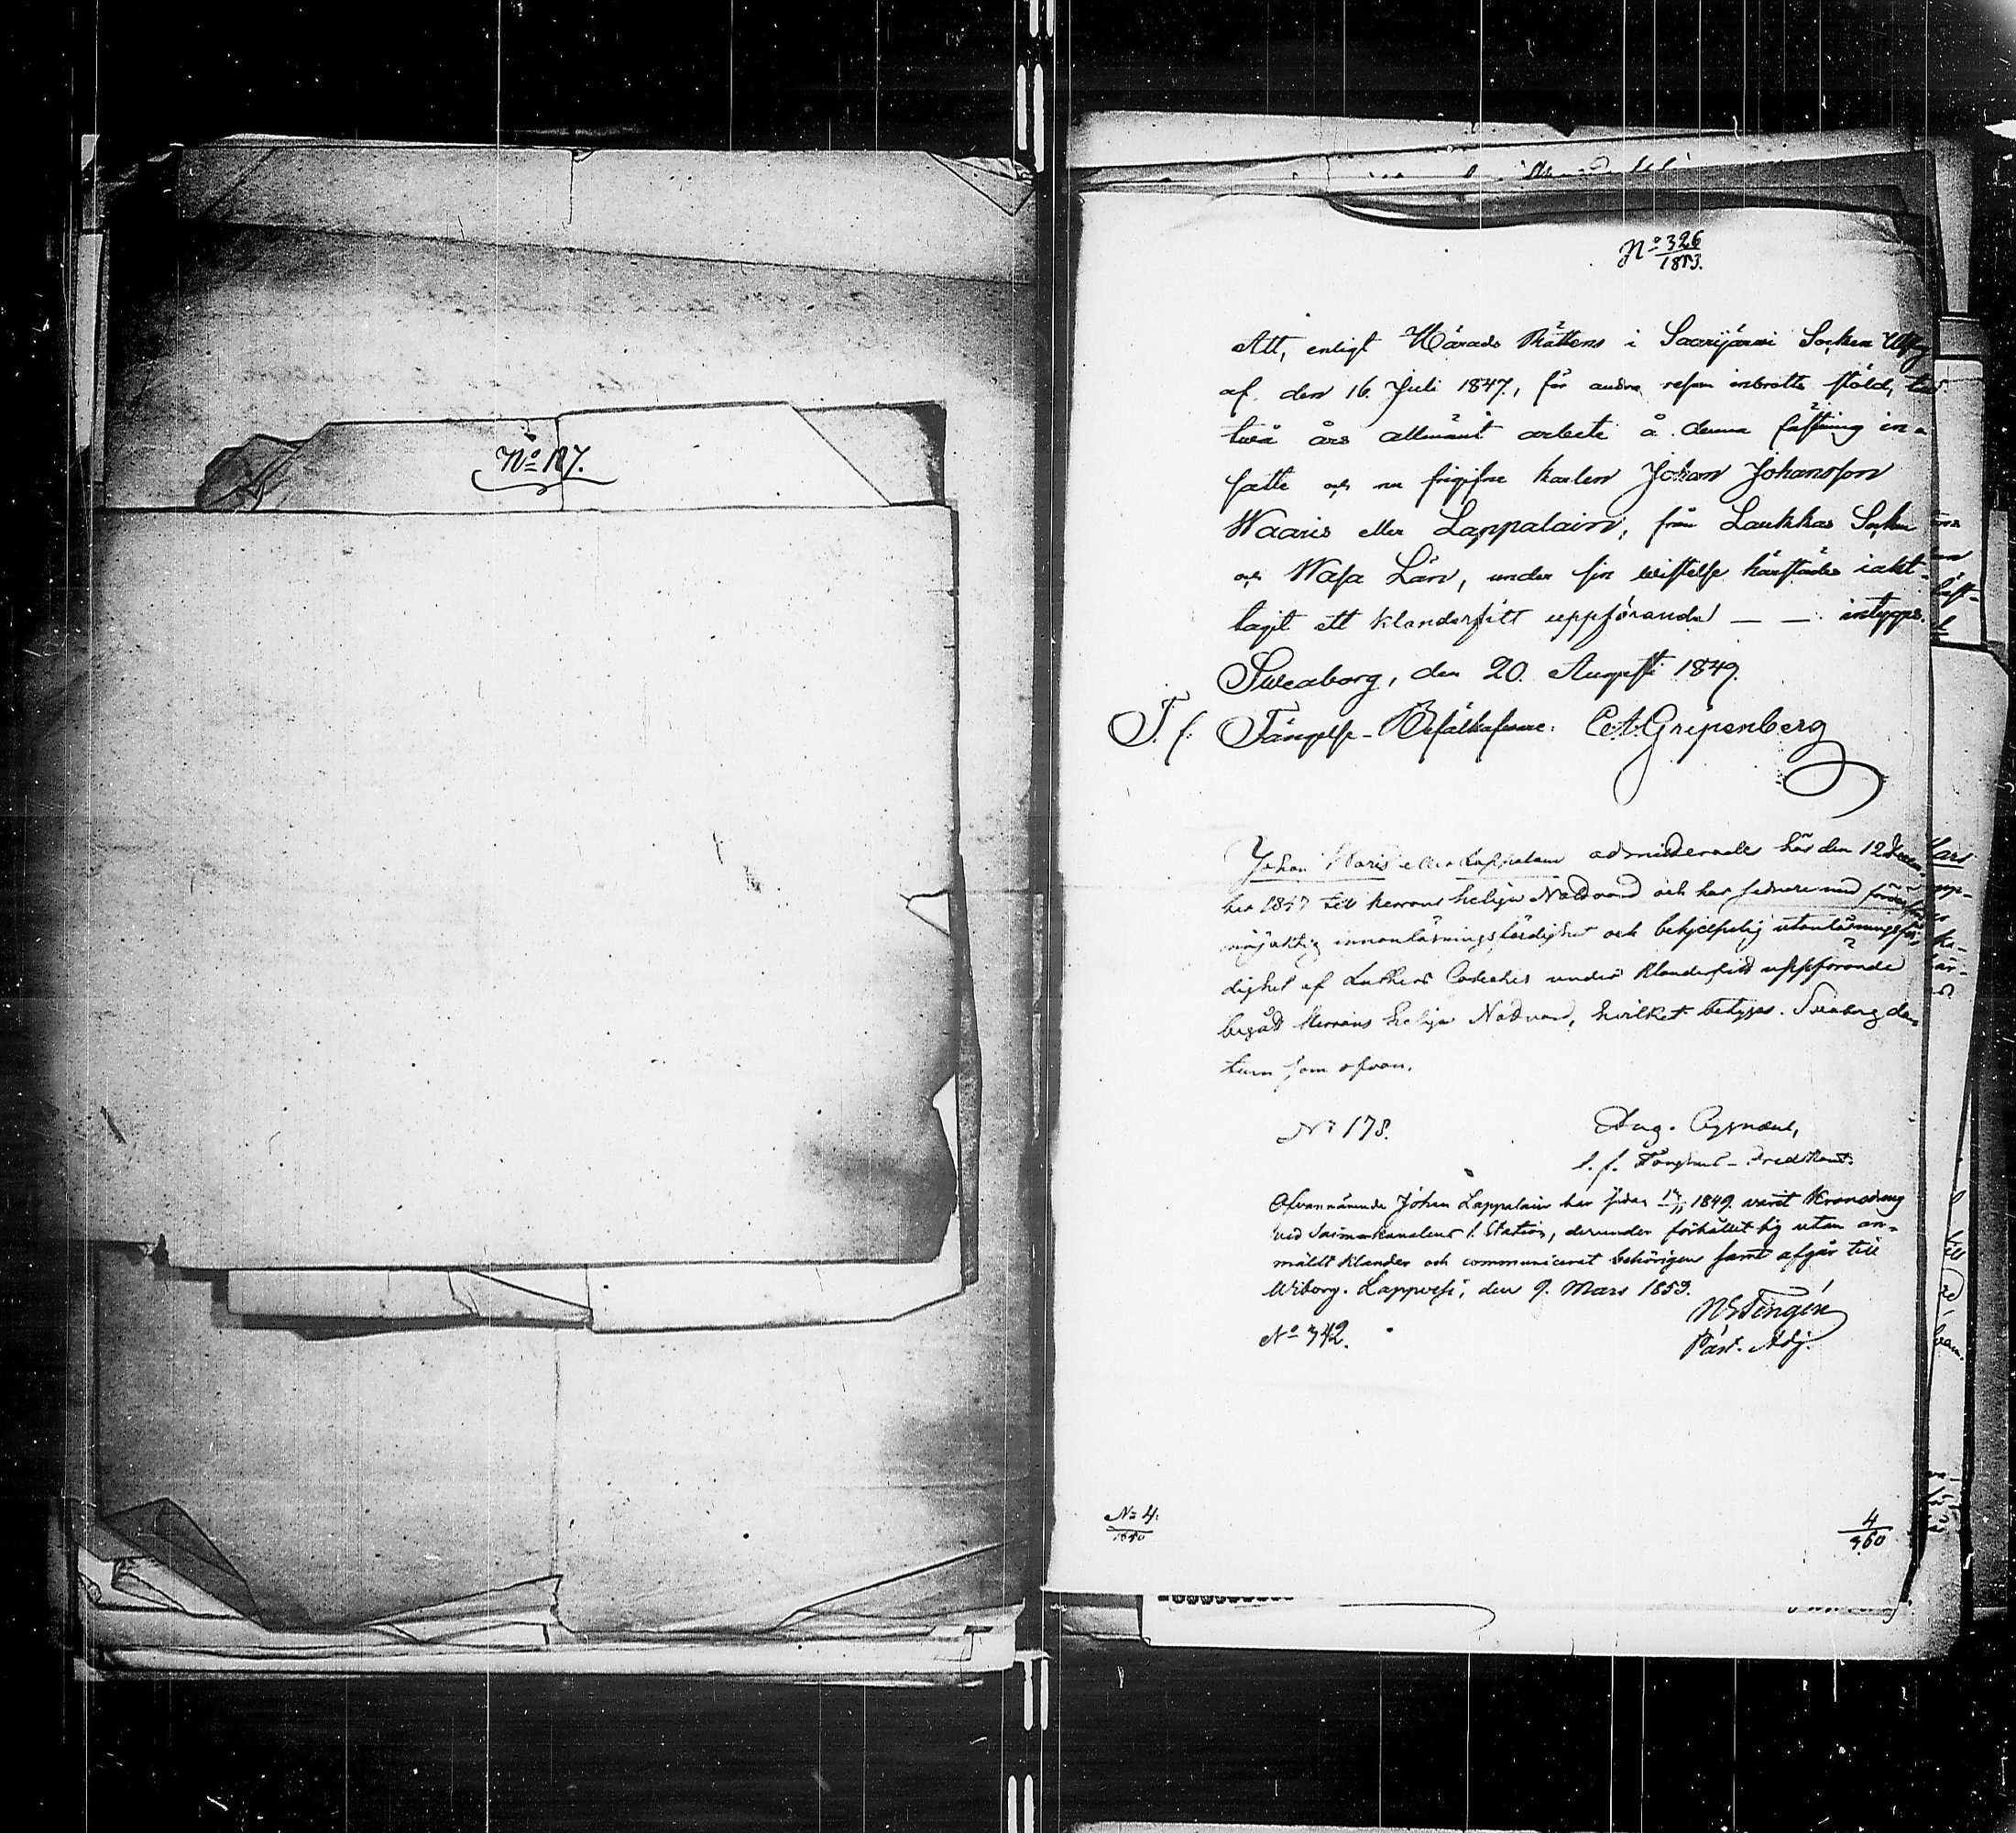 No 187.
No 326
1853.
Att, enligt Härads Rättens i Saarijärvi Socken Utslag
af den 16. Juli 1847, för andra resan inbrotts stöld, till
twå års allmänt arbete å denna fästning in-
satte och nu frigifne karlen Johan Johansson
Waaris eller Lappalain, från Laukkas Socken
och Wasa Län, under sin wistelse härstädes iakt-
tagit ett klanderfritt uppförande — — intygas.
Sweaborg, den 20. Augusti 1849.
T. f. Fängelse-Befälhafware. C.A. Gripenberg
Johan Waris eller Lappalain admitterades här den 12 Decem-
ber 1847 till Herrans heliga Nattvard och har sednare med
nöjaktig innanläsningsfärdighet och behjelpelig utanläsningsfär-
dighet af Luthers Cateches under klanderfritt uppförande
begått Herrans heliga Nattvard, hvilket betygas. Sveaborg da-
tum som ofvan.
No 178.
Aug. Cygnæus,
t. f. Fängelse-Predikant.
Ofvannämnde Johan Lappalain har sedan 14/11 1849 varit Kronodräng
vid Saima kanalens 1. Station, derunder förhållit sig utan an-
mäldt klander och communicerat behörigen samt afgår till
Wiborg. Lappvesi, den 9. Mars 1853.
No 342.
Past. Adj.
No 4.
1850
4
360